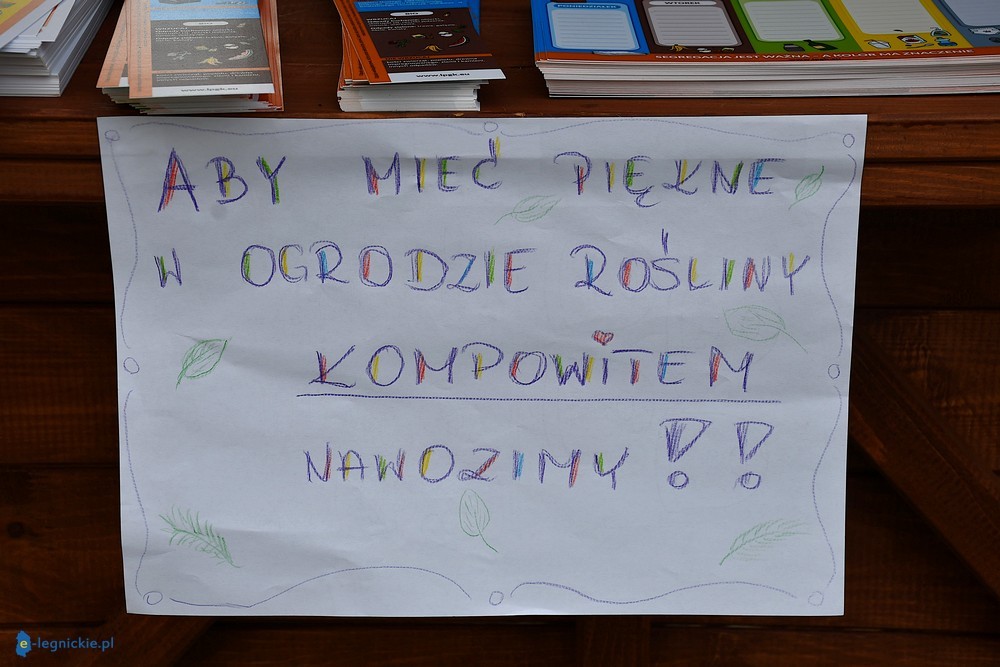 PONIEDZIAŁEK
WTOREK
www.lpgk.eu
www.lpgk.eu
SEGREGACJA JEST WAŻNA - A KOLOR MA ZNACZENIE
ABY MIEĆ PIĘKNE
W OGRODZIE ROŚLINY
KOMPOWITEM
NAWOZIMY !!
e-legnickie.pl